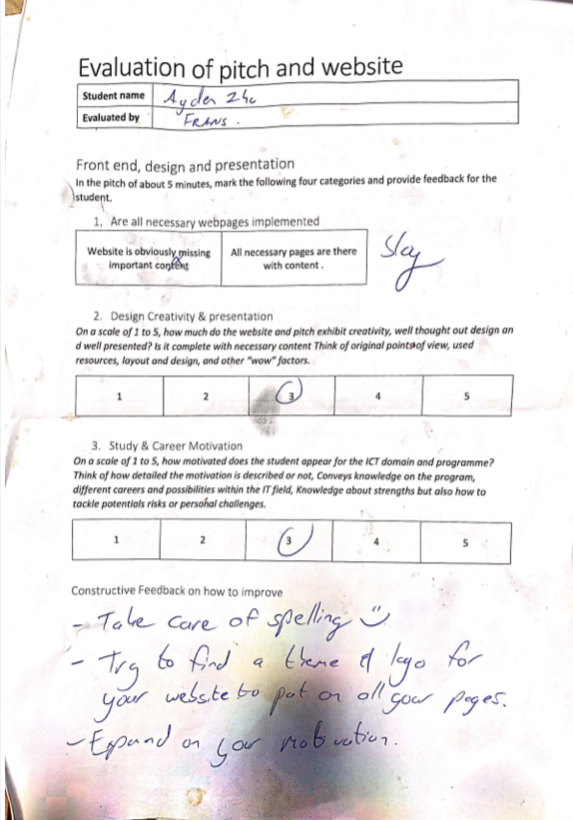 Evaluation of pitch and website
Student name Ayden
Evaluated by FRANS.
Front end, design and presentation
In the pitch of about 5 minutes, mark the following four categories and provide feedback for the
student.
1. Are all necessary webpages implemented
Website is obviously missing
important content
All necessary pages are there
with content.
Slay
2. Design Creativity & presentation
On a scale of 1 to 5, how much do the website and pitch exhibit creativity, well thought out design an
d well presented? Is it complete with necessary content Think of original points of view, used
resources, layout and design, and other "wow" factors.
1 2 3 4 5
3. Study & Career Motivation
On a scale of 1 to 5, how motivated does the student appear for the ICT domain and programme?
Think of how detailed the motivation is described or not, Conveys knowledge on the program,
different careers and possibilities within the IT field, Knowledge about strengths but also how to
tackle potentials risks or personal challenges.
1 2 3 4 5
Constructive Feedback on how to improve
- Take care of spelling
- Try to find a theme & logo for
your website to put on all your pages.
- Expand on your motivation.